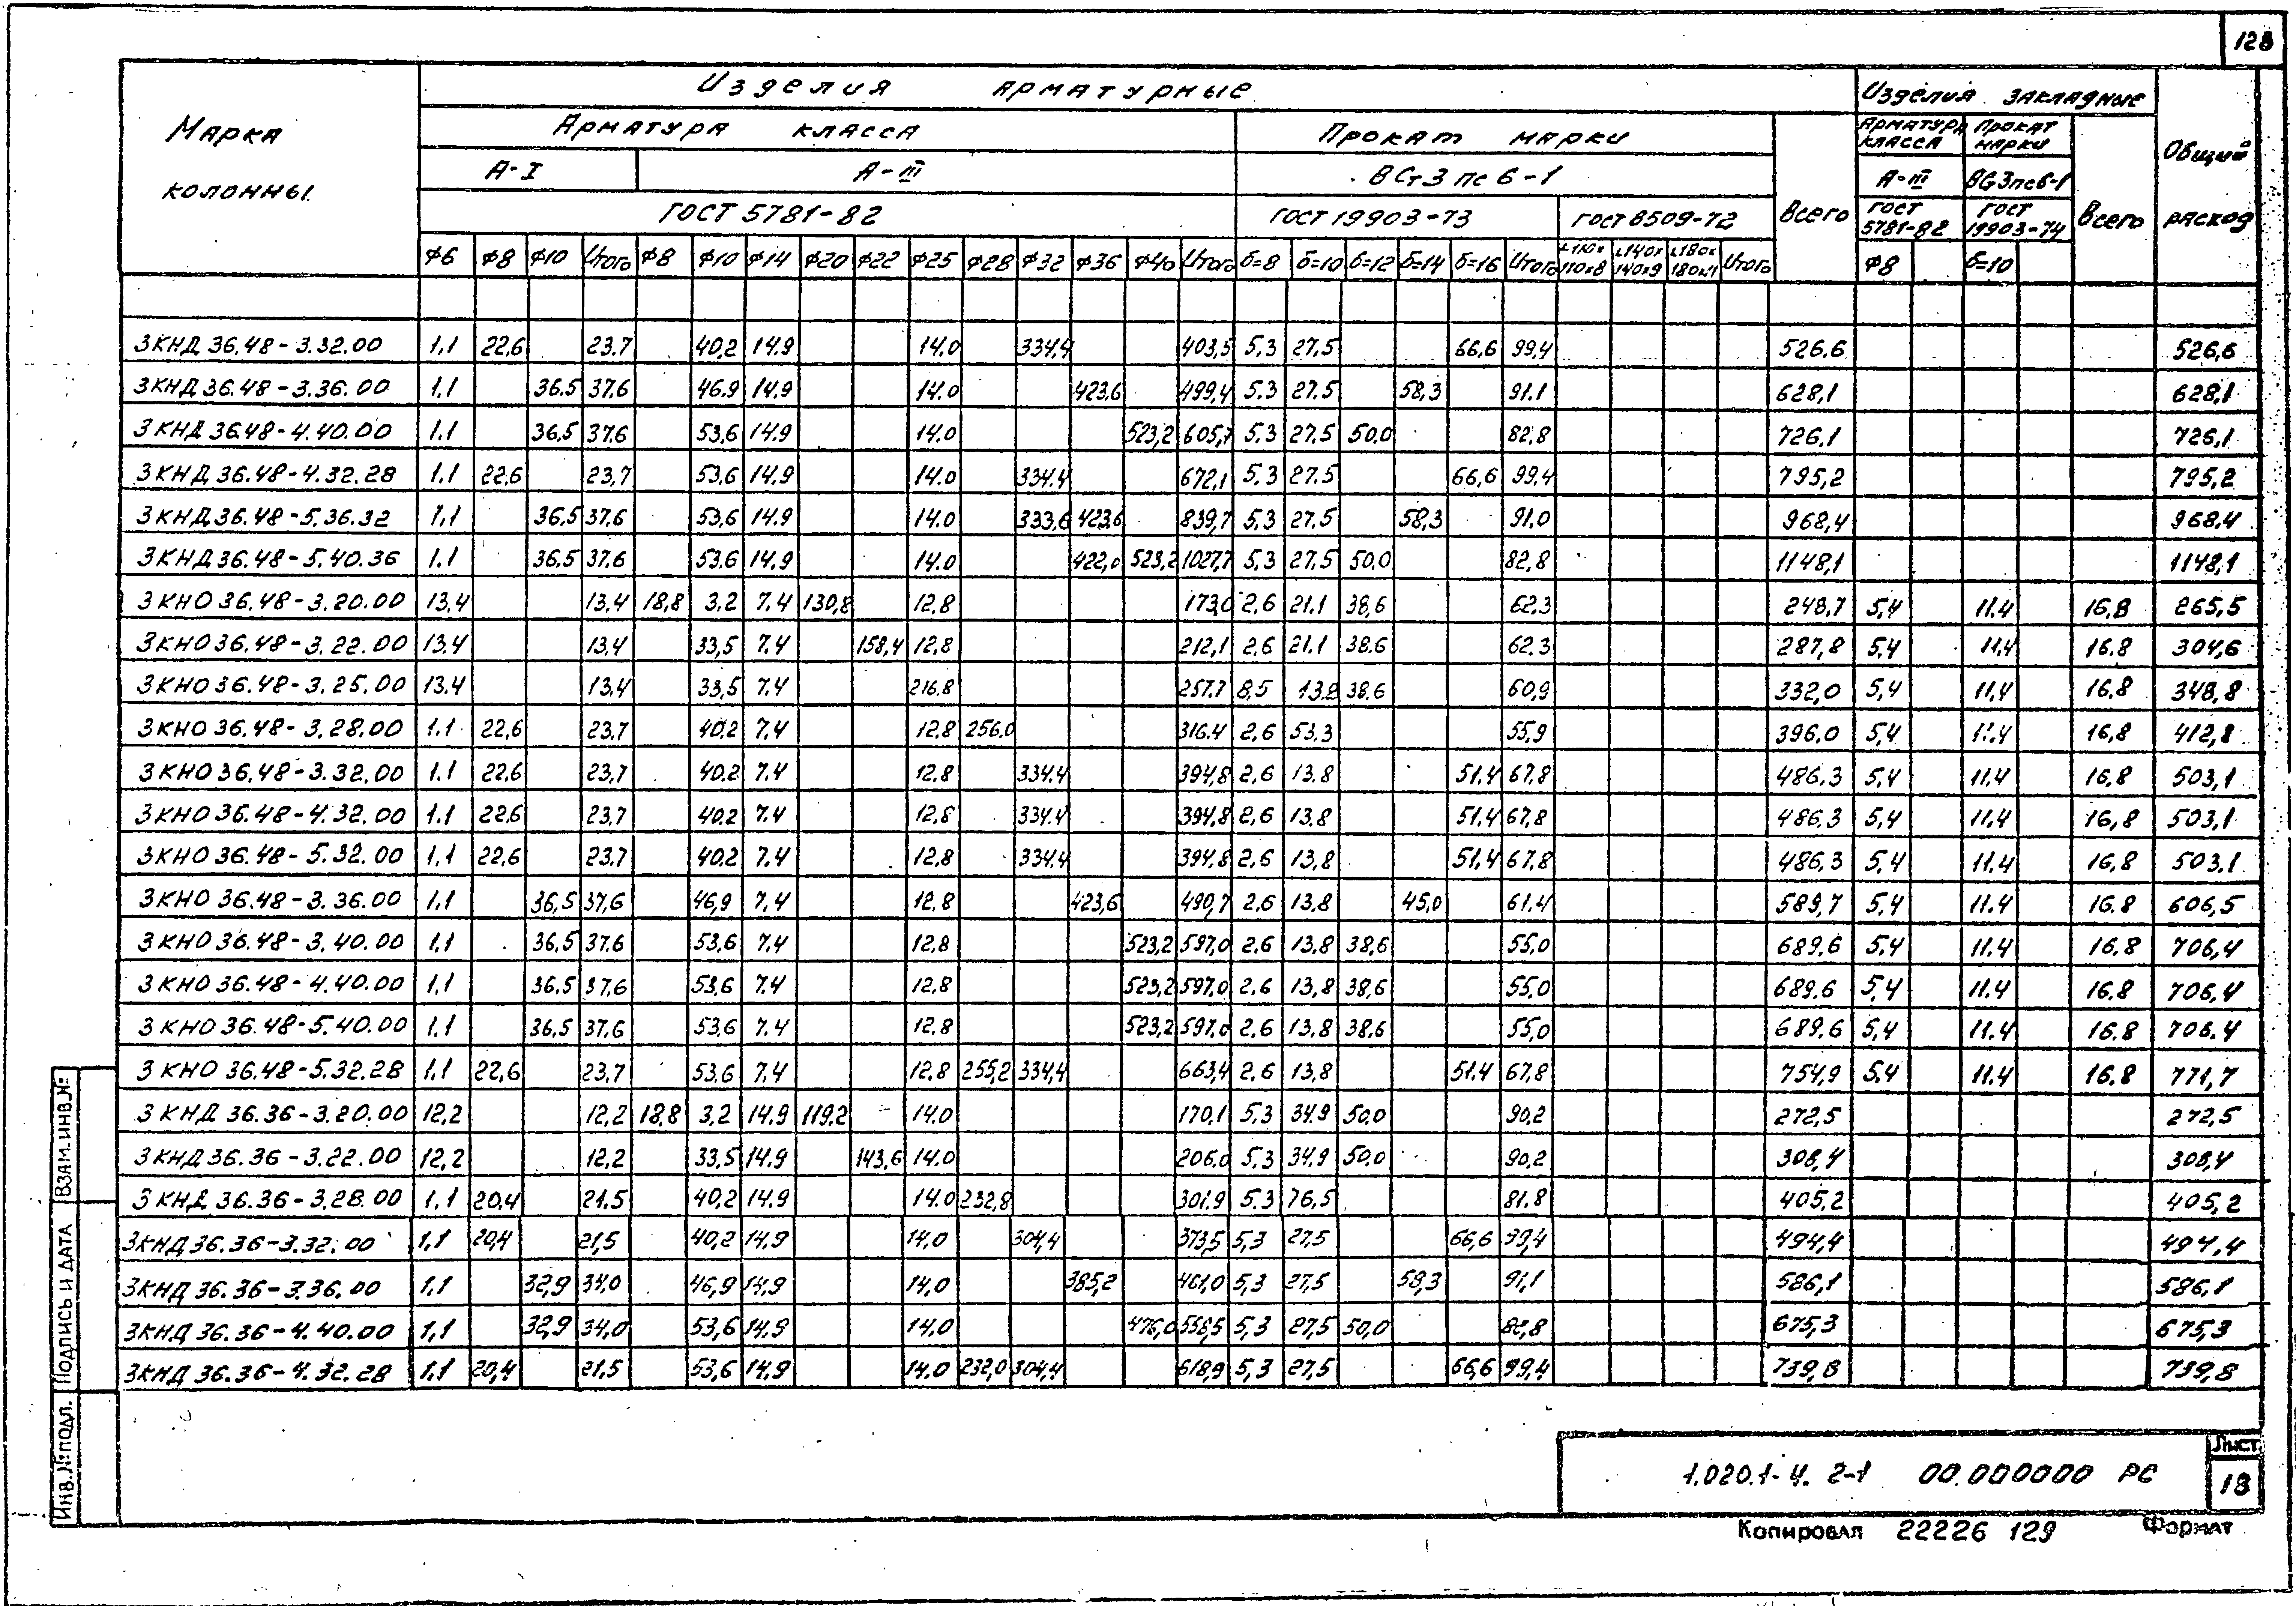 128
Марка колонны
Изделия арматурные
Изделия закладные
Общий расход
Арматура класса
Прокат марки
Всего
Арматура класса
Прокат марки
Всего
А-I
А-III
ВСт3пс6-1
А-III
ВСт3пс6-1
ГОСТ 5781-82
ГОСТ 19903-73
ГОСТ 8509-72
ГОСТ 5781-82
ГОСТ 19903-74
ф6 ф8 ф10 Итого ф8 ф10 ф14 ф20 ф22 ф25 ф28 ф32 ф36 ф40 Итого б=8 б=10 б=12 б=14 б=16 Итого L110х110х8 L140х140х9 L180х180х11 Итого ф8 б=10
3КНД 36.48-3.32.00 1,1 22,6 23,7 40,2 14,9 14,0 334,4 403,5 5,3 27,5 66,6 99,4 526,6 526,6
3КНД 36.48-3.36.00 1,1 36,5 37,6 46,9 14,9 14,0 423,6 499,4 5,3 27,5 58,3 91,1 628,1 628,1
3КНД 36.48-4.40.00 1,1 36,5 37,6 53,6 14,9 14,0 523,2 605,7 5,3 27,5 50,0 82,8 726,1 726,1
3КНД 36.48-4.32.28 1,1 22,6 23,7 53,6 14,9 14,0 334,4 672,1 5,3 27,5 66,6 99,4 795,2 795,2
3КНД 36.48-5.36.32 1,1 36,5 37,6 53,6 14,9 14,0 333,6 423,6 839,7 5,3 27,5 58,3 91,0 968,4 968,4
3КНД 36.48-5.40.36 1,1 36,5 37,6 53,6 14,9 14,0 422,0 523,2 1027,7 5,3 27,5 50,0 82,8 1148,1 1148,1
3КНО 36.48-3.20.00 13,4 13,4 18,8 3,2 7,4 130,8 12,8 173,0 2,6 21,1 38,6 62,3 248,7 5,4 11,4 16,8 265,5
3КНО 36.48-3.22.00 13,4 13,4 33,5 7,4 158,4 12,8 212,1 2,6 21,1 38,6 62,3 287,8 5,4 11,4 16,8 304,6
3КНО 36.48-3.25.00 13,4 13,4 33,5 7,4 216,8 257,7 8,5 13,8 38,6 60,9 332,0 5,4 11,4 16,8 348,8
3КНО 36.48-3.28.00 1,1 22,6 23,7 40,2 7,4 12,8 256,0 316,4 2,6 53,3 55,9 396,0 5,4 11,4 16,8 412,8
3КНО 36.48-3.32.00 1,1 22,6 23,7 40,2 7,4 12,8 334,4 394,8 2,6 13,8 51,4 67,8 486,3 5,4 11,4 16,8 503,1
3КНО 36.48-4.32.00 1,1 22,6 23,7 40,2 7,4 12,8 334,4 394,8 2,6 13,8 51,4 67,8 486,3 5,4 11,4 16,8 503,1
3КНО 36.48-5.32.00 1,1 22,6 23,7 40,2 7,4 12,8 334,4 394,8 2,6 13,8 51,4 67,8 486,3 5,4 11,4 16,8 503,1
3КНО 36.48-3.36.00 1,1 36,5 37,6 46,9 7,4 12,8 423,6 490,7 2,6 13,8 45,0 61,4 589,7 5,4 11,4 16,8 606,5
3КНО 36.48-3.40.00 1,1 36,5 37,6 53,6 7,4 12,8 523,2 597,0 2,6 13,8 38,6 55,0 689,6 5,4 11,4 16,8 706,4
3КНО 36.48-4.40.00 1,1 36,5 37,6 53,6 7,4 12,8 523,2 597,0 2,6 13,8 38,6 55,0 689,6 5,4 11,4 16,8 706,4
3КНО 36.48-5.40.00 1,1 36,5 37,6 53,6 7,4 12,8 523,2 597,0 2,6 13,8 38,6 55,0 689,6 5,4 11,4 16,8 706,4
3КНО 36.48-5.32.28 1,1 22,6 23,7 53,6 7,4 12,8 255,2 334,4 663,4 2,6 13,8 51,4 67,8 754,9 5,4 11,4 16,8 771,7
3КНД 36.36-3.20.00 12,2 12,2 18,8 3,2 14,9 119,2 14,0 170,1 5,3 34,9 50,0 90,2 272,5 272,5
3КНД 36.36-3.22.00 12,2 12,2 33,5 14,9 143,6 14,0 206,0 5,3 34,9 50,0 90,2 308,4 308,4
3КНД 36.36-3.28.00 1,1 20,4 21,5 40,2 14,9 14,0 232,8 301,9 5,3 76,5 81,8 405,2 405,2
3КНД 36.36-3.32.00 1,1 20,4 21,5 40,2 14,9 14,0 304,4 373,5 5,3 27,5 66,6 99,4 494,4 494,4
3КНД 36.36-3.36.00 1,1 32,9 34,0 46,9 14,9 14,0 385,2 461,0 5,3 27,5 58,3 91,1 586,1 586,1
3КНД 36.36-4.40.00 1,1 32,9 34,0 53,6 14,9 14,0 476,0 558,5 5,3 27,5 50,0 82,8 675,3 675,3
3КНД 36.36-4.32.28 1,1 20,4 21,5 53,6 14,9 14,0 232,0 304,4 618,9 5,3 27,5 66,6 99,4 739,8 739,8
Инв.№подл. Подпись и дата Взам.инв.№
1.020.1-4. 2-1 00.000000 РС
Лист
18
Копировал 22226 129 Формат